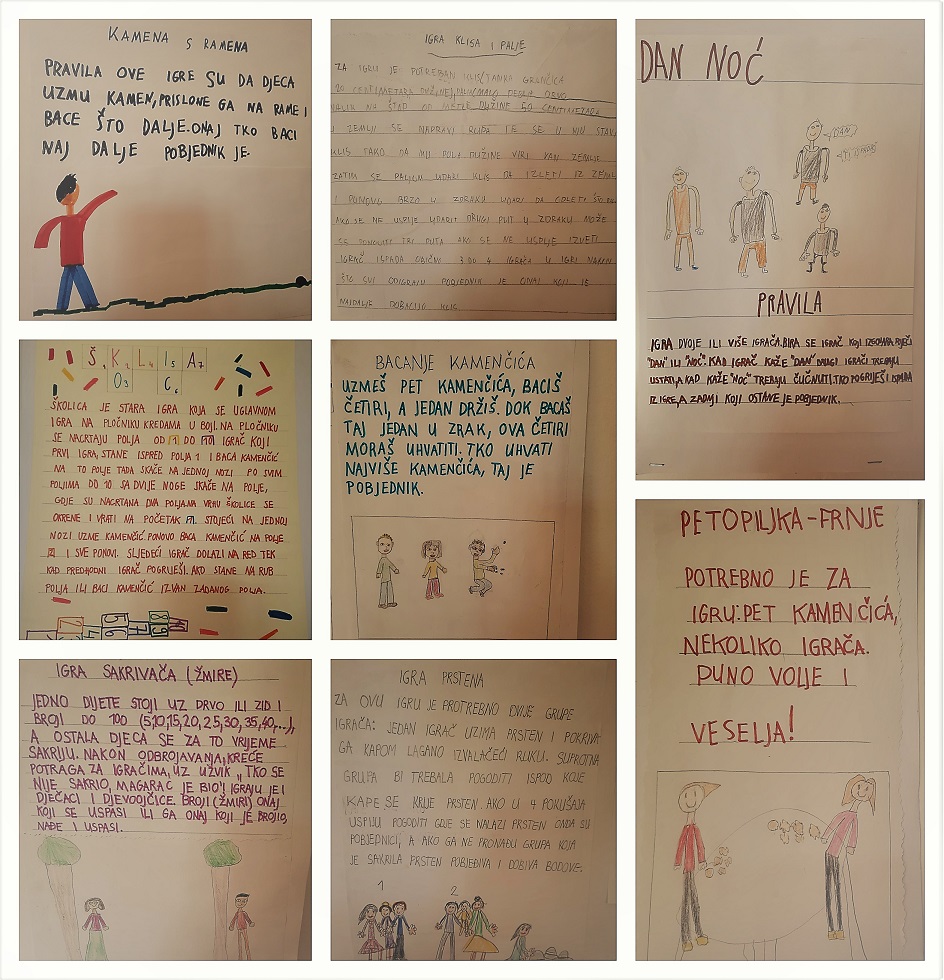 KAMENA S RAMENA
PRAVILA OVE IGRE SU DA DJECA
UZMU KAMEN, PRISLONE GA NA RAME I
BACE ŠTO DALJE. ONAJ TKO BACI
NAJ DALJE POBJEDNIK JE.
IGRA KLISA I PALJE
ZA IGRU JE POTREBAN KLIS/TANKA GRANČICA
20 CENTIMETARA DUŽINE/,
DUŽINE 50 CENTIMETARA
U ZEMLJI SE NAPRAVI RUPA TE SE U NJU STAVI
KLIS TAKO DA MU POLA DUŽINE VIRI VAN ZEMLJE
ZATIM SE PALJOM UDARI KLIS DA IZLETI IZ ZEMLJE
I PONOVO BRZO U ZDRAKU UDARI DA ODLETI ŠTO
AKO SE NE USPIJE UDARIT DRUGI PUT U ZDRAKU MOŽE
SE PONOVITI TRI PUTA AKO SE NE USPIJE IZVETI
IGRAČ ISPADA OBIČNO 3 DO 4 IGRAČA U IGRI NAKON
ŠTO SVI ODIGRAJU POBJEDNIK JE ONAJ KOJI JE
NAJDALJE DOBACIJO KLIS
DAN NOĆ
DAN
PRAVILA
IGRA DVOJE ILI VIŠE IGRAČA. BIRA SE IGRAČ KOJI IZGOVARA RIJEČI
"DAN" ILI "NOĆ". KAD IGRAČ KAŽE "DAN" DRUGI IGRAČI TREBAJU
USTATI, A KAD KAŽE "NOĆ" TREBAJU ČUČNUTI. TKO POGRIJEŠI ISPADA
IZ IGRE, A ZADNJI KOJI OSTANE JE POBJEDNIK.
Š K1 L4 I5 A7
O3 C6
ŠKOLICA JE STARA IGRA KOJA SE UGLAVNOM
IGRA NA PLOČNIKU KREDAMA U BOJI. NA PLOČNIKU
SE NACRTAJU POLJA OD 1 DO 10 IGRAČ KOJI
PRVI IGRA, STANE ISPRED POLJA 1 I BACA KAMENČIĆ
NA TO POLJE TADA SKAČE NA JEDNOJ NOZI PO SVIM
POLJIMA DO 10 SA DVIJE NOGE SKAČE NA POLJE,
GDJE SU NACRTANA DVA POLJA. NA VRHU ŠKOLICE SE
OKRENE I VRATI NA POČETAK 1. STOJEĆI NA JEDNOJ
NOZI UZME KAMENČIĆ PONOVO BACA KAMENČIĆ NA POLJE
2 I SVE PONOVI. SLJEDEĆI IGRAČ DOLAZI NA RED TEK
KAD PREDHODNI IGRAČ POGRIJEŠI. AKO STANE NA RUB
POLJA ILI BACI KAMENČIĆ IZVAN ZADANOG POLJA.
BACANJE KAMENČIĆA
UZMEŠ PET KAMENČIĆA, BACIŠ
ČETIRI, A JEDAN DRŽIŠ. DOK BACAŠ
TAJ JEDAN U ZRAK, OVA ČETIRI
MORAŠ UHVATITI. TKO UHVATI
NAJVIŠE KAMENČIĆA, TAJ JE
POBJEDNIK.
PETOPILJKA-FRNJE
POTREBNO JE ZA
IGRU: PET KAMENČIĆA,
NEKOLIKO IGRAČA.
PUNO VOLJE I
VESELJA!
IGRA SAKRIVAČA (ŽMIRE)
JEDNO DIJETE STOJI UZ DRVO ILI ZID I
BROJI DO 100 (5,10,15,20,25,30,35,40,...),
A OSTALA DJECA SE ZA TO VRIJEME
SAKRIJU. NAKON ODBROJAVANJA, KREĆE
POTRAGA ZA IGRAČIMA, UZ UZVIK „TKO SE
NIJE SAKRIO, MAGARAC JE BIO"! IGRAJU JE I
DJEČACI I DJEVOOJČICE. BROJI (ŽMIRI) ONAJ
KOJI SE USPASI ILI GA ONAJ KOJI JE BROJIO,
NAĐE I USPASI.
IGRA PRSTENA
ZA OVU IGRU JE PROTREBNO DVIJE GRUPE
IGRAČA: JEDAN IGRAČ UZIMA PRSTEN I POKRIVA
GA KAPOM LAGANO IZVALAČEĆI RUKU. SUPROTNA
GRUPA BI TREBALA POGODITI ISPOD KOJE
KAPE SE KRIJE PRSTEN. AKO U 4 POKUŠAJA
USPIJU POGODITI GDJE SE NALAZI PRSTEN ONDA SU
POBJEDNICI, A AKO GA NE PRONAĐU GRUPA KOJA
JE SAKRILA PRSTEN POBJEĐIVA I DOBIVA BODOVE.
1 2